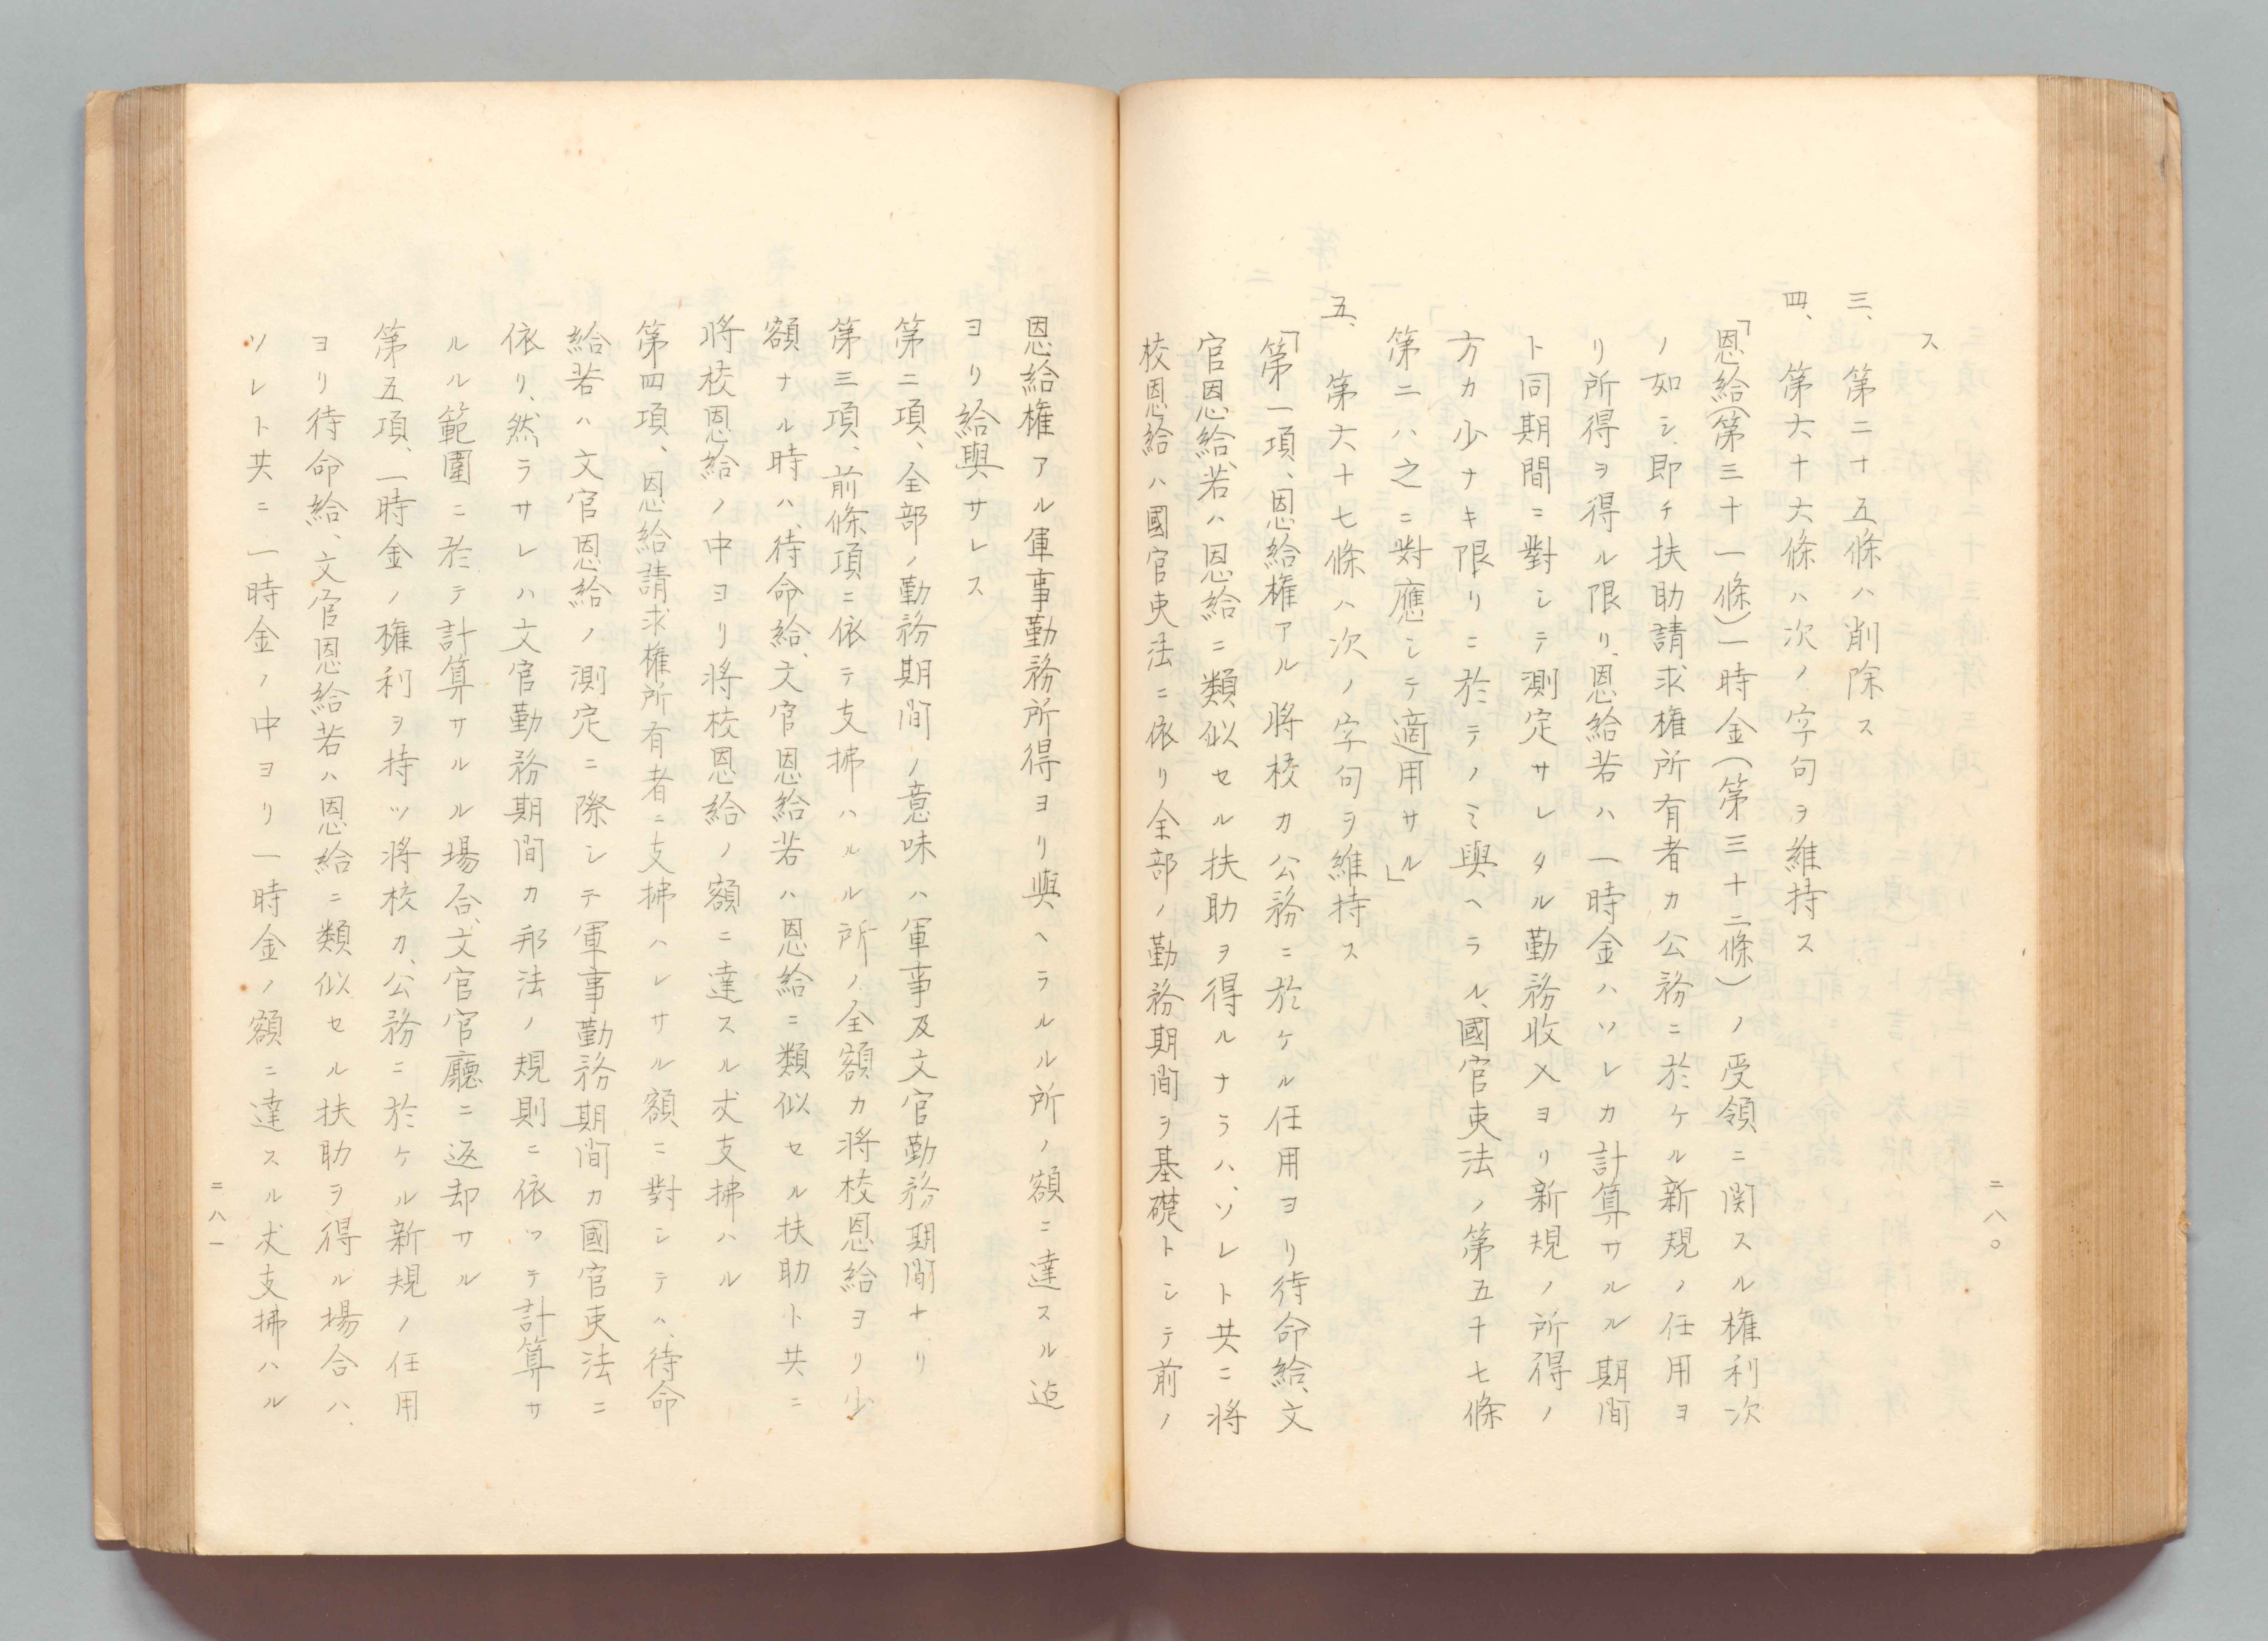 ス
三、第二十五條ハ削除ス
四、第六十六條ハ次ノ字句ヲ維持ス
「恩給(第三十一條)一時金(第三十二條)ノ受領ニ関スル権利次
ノ如シ、即チ扶助請求権所有者カ公務ニ於ケル新規ノ任用ヨ
リ所得ヲ得ル限リ、恩給若ハ一時金ハソレカ計算サルル期間
ト同期間ニ對シテ測定サレタル勤務收入ヨリ新規ノ所得ノ
方カ少ナキ限リニ於テノミ與ヘラル、國官吏法ノ第五十七條
第二ハ之ニ對應シテ適用サル」
五、第六十七條ハ次ノ字句ヲ維持ス
「第一項、恩給権アル將校カ公務ニ於ケル任用ヨリ待命給、文
官恩給、若ハ恩給ニ類似セル扶助ヲ得ルナラハ、ソレト共ニ將
校恩給ハ國官吏法ニ依リ全部ノ勤務期間ヲ基礎トシテ前ノ
二八〇
恩給権アル軍事勤務所得ヨリ與ヘラルル所ノ額ニ達スル迠
ヨリ給與サレス
第二項、全部ノ勤務期間ノ意味ハ軍事及文官勤務期間ナリ
第三項、前條項ニ依テ支拂ハルル所ノ全額カ將校恩給ヨリ少
額ナル時ハ、待命給、文官恩給若ハ恩給ニ類似セル扶助ト共ニ
將校恩給ノ中ヨリ將校恩給ノ額ニ達スル丈支拂ハル
第四項、恩給請求権所有者ニ支拂ハレサル額ニ對シテハ、待命
給若ハ文官恩給ノ測定ニ際シテ軍事勤務期間カ國官吏法ニ
依リ、然ラサレハ文官勤務期間カ邦法ノ規則ニ依ツテ計算サ
ルル範圍ニ於テ計算サルル場合、文官官廳ニ返却サル
第五項、一時金ノ権利ヲ持ツ將校カ、公務ニ於ケル新規ノ任用
ヨリ待命給、文官恩給若ハ恩給ニ類似セル扶助ヲ得ル場合ハ、
ソレト共ニ一時金ノ中ヨリ一時金ノ額ニ達スル丈支拂ハル
二八一